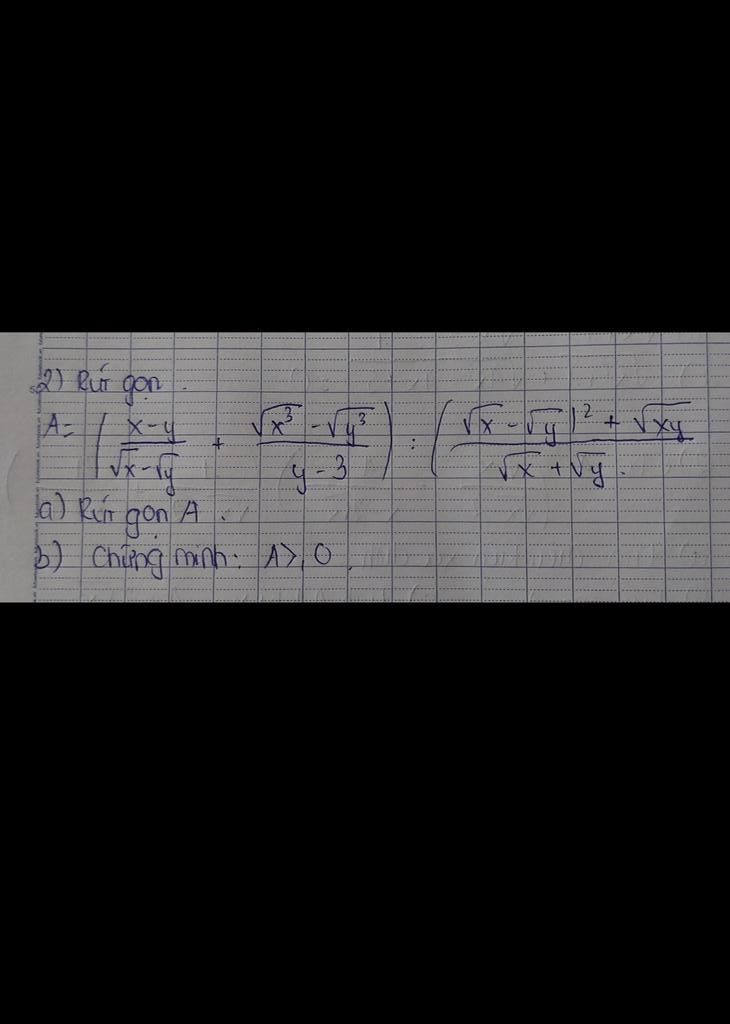 2) Rút gọn.
A = ( (x-y)/(√x-√y) + (√x³ - √y³)/(y-3) ) : ( (√x - √y)² + √xy / (√x + √y).
a) Rút gọn A.
b) Chứng minh: A ≥ 0.